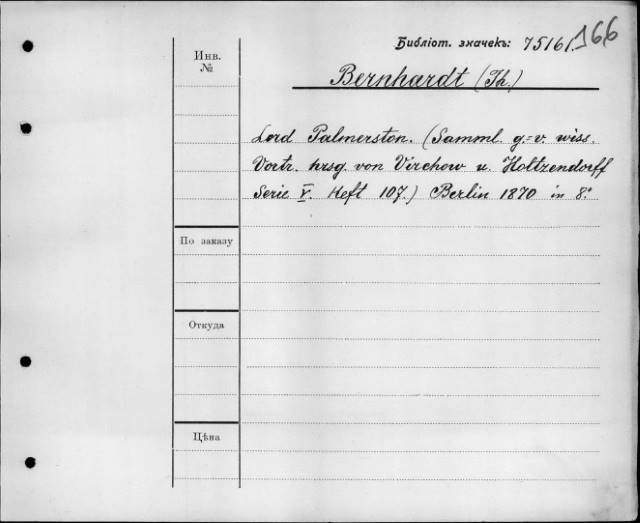 Библіот. значекъ: 75161.166
Инв.
№
Bernhardt (Th.)
Lord Palmerston. (Samml. g.=v. wiss.
Vortr. hrsg. von Virchow u. Holtzendorff
Serie V. Heft 107.) Berlin 1870 in 8°.
По заказу
Откуда
Цѣна